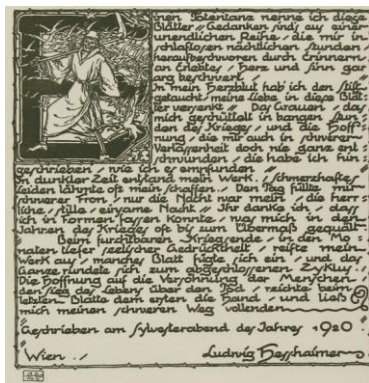 inen Totentanz nenne ich diese
Blätter. Gedanken sind's aus einer
unendlichen Reihe, die mir in
schlaflosen nächtlichen Stunden
heraufbeschworen durch Erinnern
an Erlebtes, Herz und Sinn gar
arg beschwert.
In mein Herzblut hab ich den Stift
getaucht, meine Liebe in diese Blät-
ter versenkt. Das Grauen, das
mich geschüttelt in bangen Stun-
den des Krieges, und die Hoff-
nung, die mir auch in schwerer
Verlassenheit doch nie ganz ent-
schwunden, die habe ich hin-
geschrieben, wie ich es empfunden.
In dunkler Zeit entstand mein Werk. Schmerzhaftes
Leiden lähmte oft mein Schaffen. Den Tag füllte mir
schwerer Fron, nur die Nacht war mein, die herr-
liche, stille, einsame Nacht. Ihr danke ich, daß
ich in Formen fassen konnte, was mich in den
Jahren des Krieges oft bis zum Übermaß gequält.
Beim furchtbaren Kriegsende, in den Mo-
naten tiefer seelischer Gedrücktheit, reifte mein
Werk aus, manches Blatt fügte sich ein, und das
Ganze rundete sich zum abgeschlossenen Zyklus.
Die Hoffnung auf die Versöhnung der Menschen
den Sieg des Lebens über den Tod, reichte beim
letzten Blatte dem ersten die Hand, und ließ
mich meinen schweren Weg vollenden
Geschrieben am Sylvesterabend des Jahres 1920
Wien. Ludwig Hesshaimer